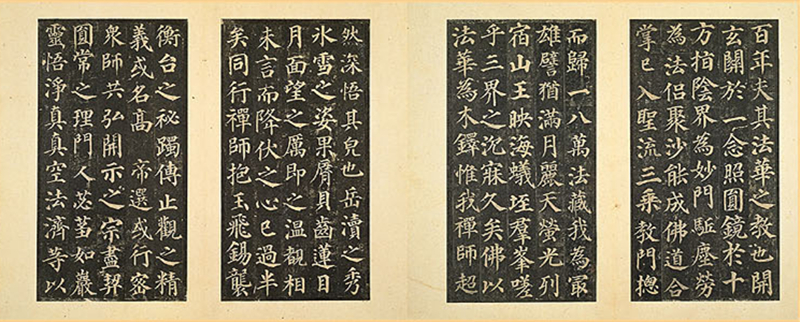 百年夫其法華之教也開
玄關於一念照圓鏡於十
方指陰界為妙門駈塵勞
為法侶聚沙能成佛道合
掌已入聖流三乘教門揔
而歸一八萬法藏我為㝡
雄譬猶滿月麗天螢光列
宿山王映海蟻垤羣峯嗟
乎三界之沉寐久矣佛以
法華為木鐸惟我禪師超
然深悟其皃也岳瀆之秀
冰雪之姿果脣貝齒蓮目
月面望之厲即之温覩相
未言而降伏之心已過半
矣同行禪師抱玉飛錫襲
衡台之祕躅傳止觀之精
義或名高 帝選或行密
衆師共弘開示之宗盡契
圓常之理門人苾蒭如巖
靈悟淨真真空法濟等以